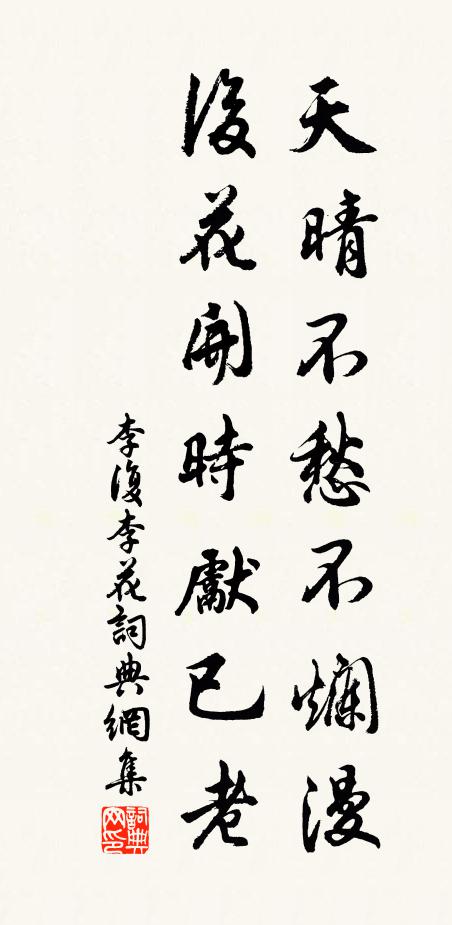 天晴不愁不爛漫
後花開時獻已老
李復李花詞典網集
詞典网印